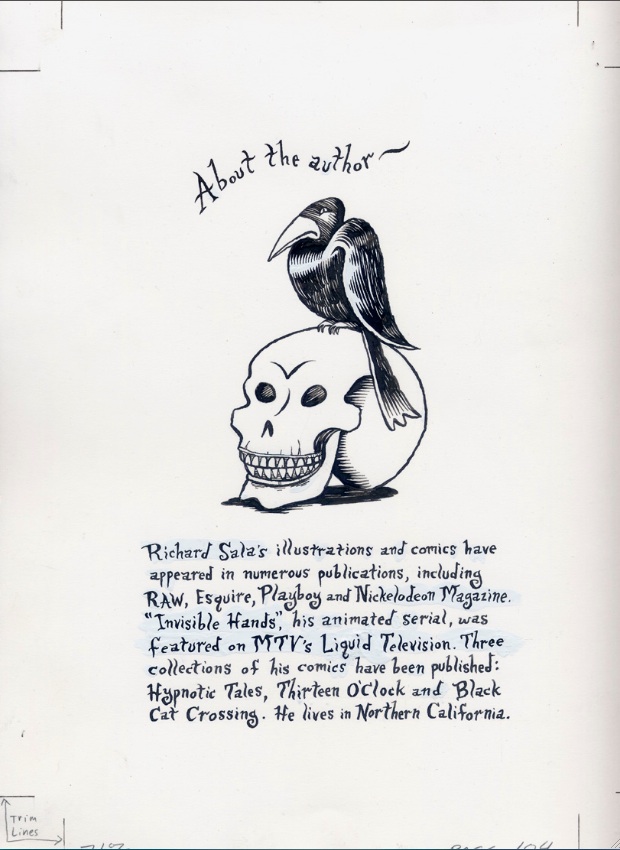 About the author~
Richard Sala's illustrations and comics have
appeared in numerous publications, including
RAW, Esquire, Playboy and Nickelodeon Magazine.
"Invisible Hands", his animated serial, was
featured on MTV's Liquid Television. Three
collections of his comics have been published:
Hypnotic Tales, Thirteen O'Clock and Black
Cat Crossing. He lives in Northern California.
Trim
Lines